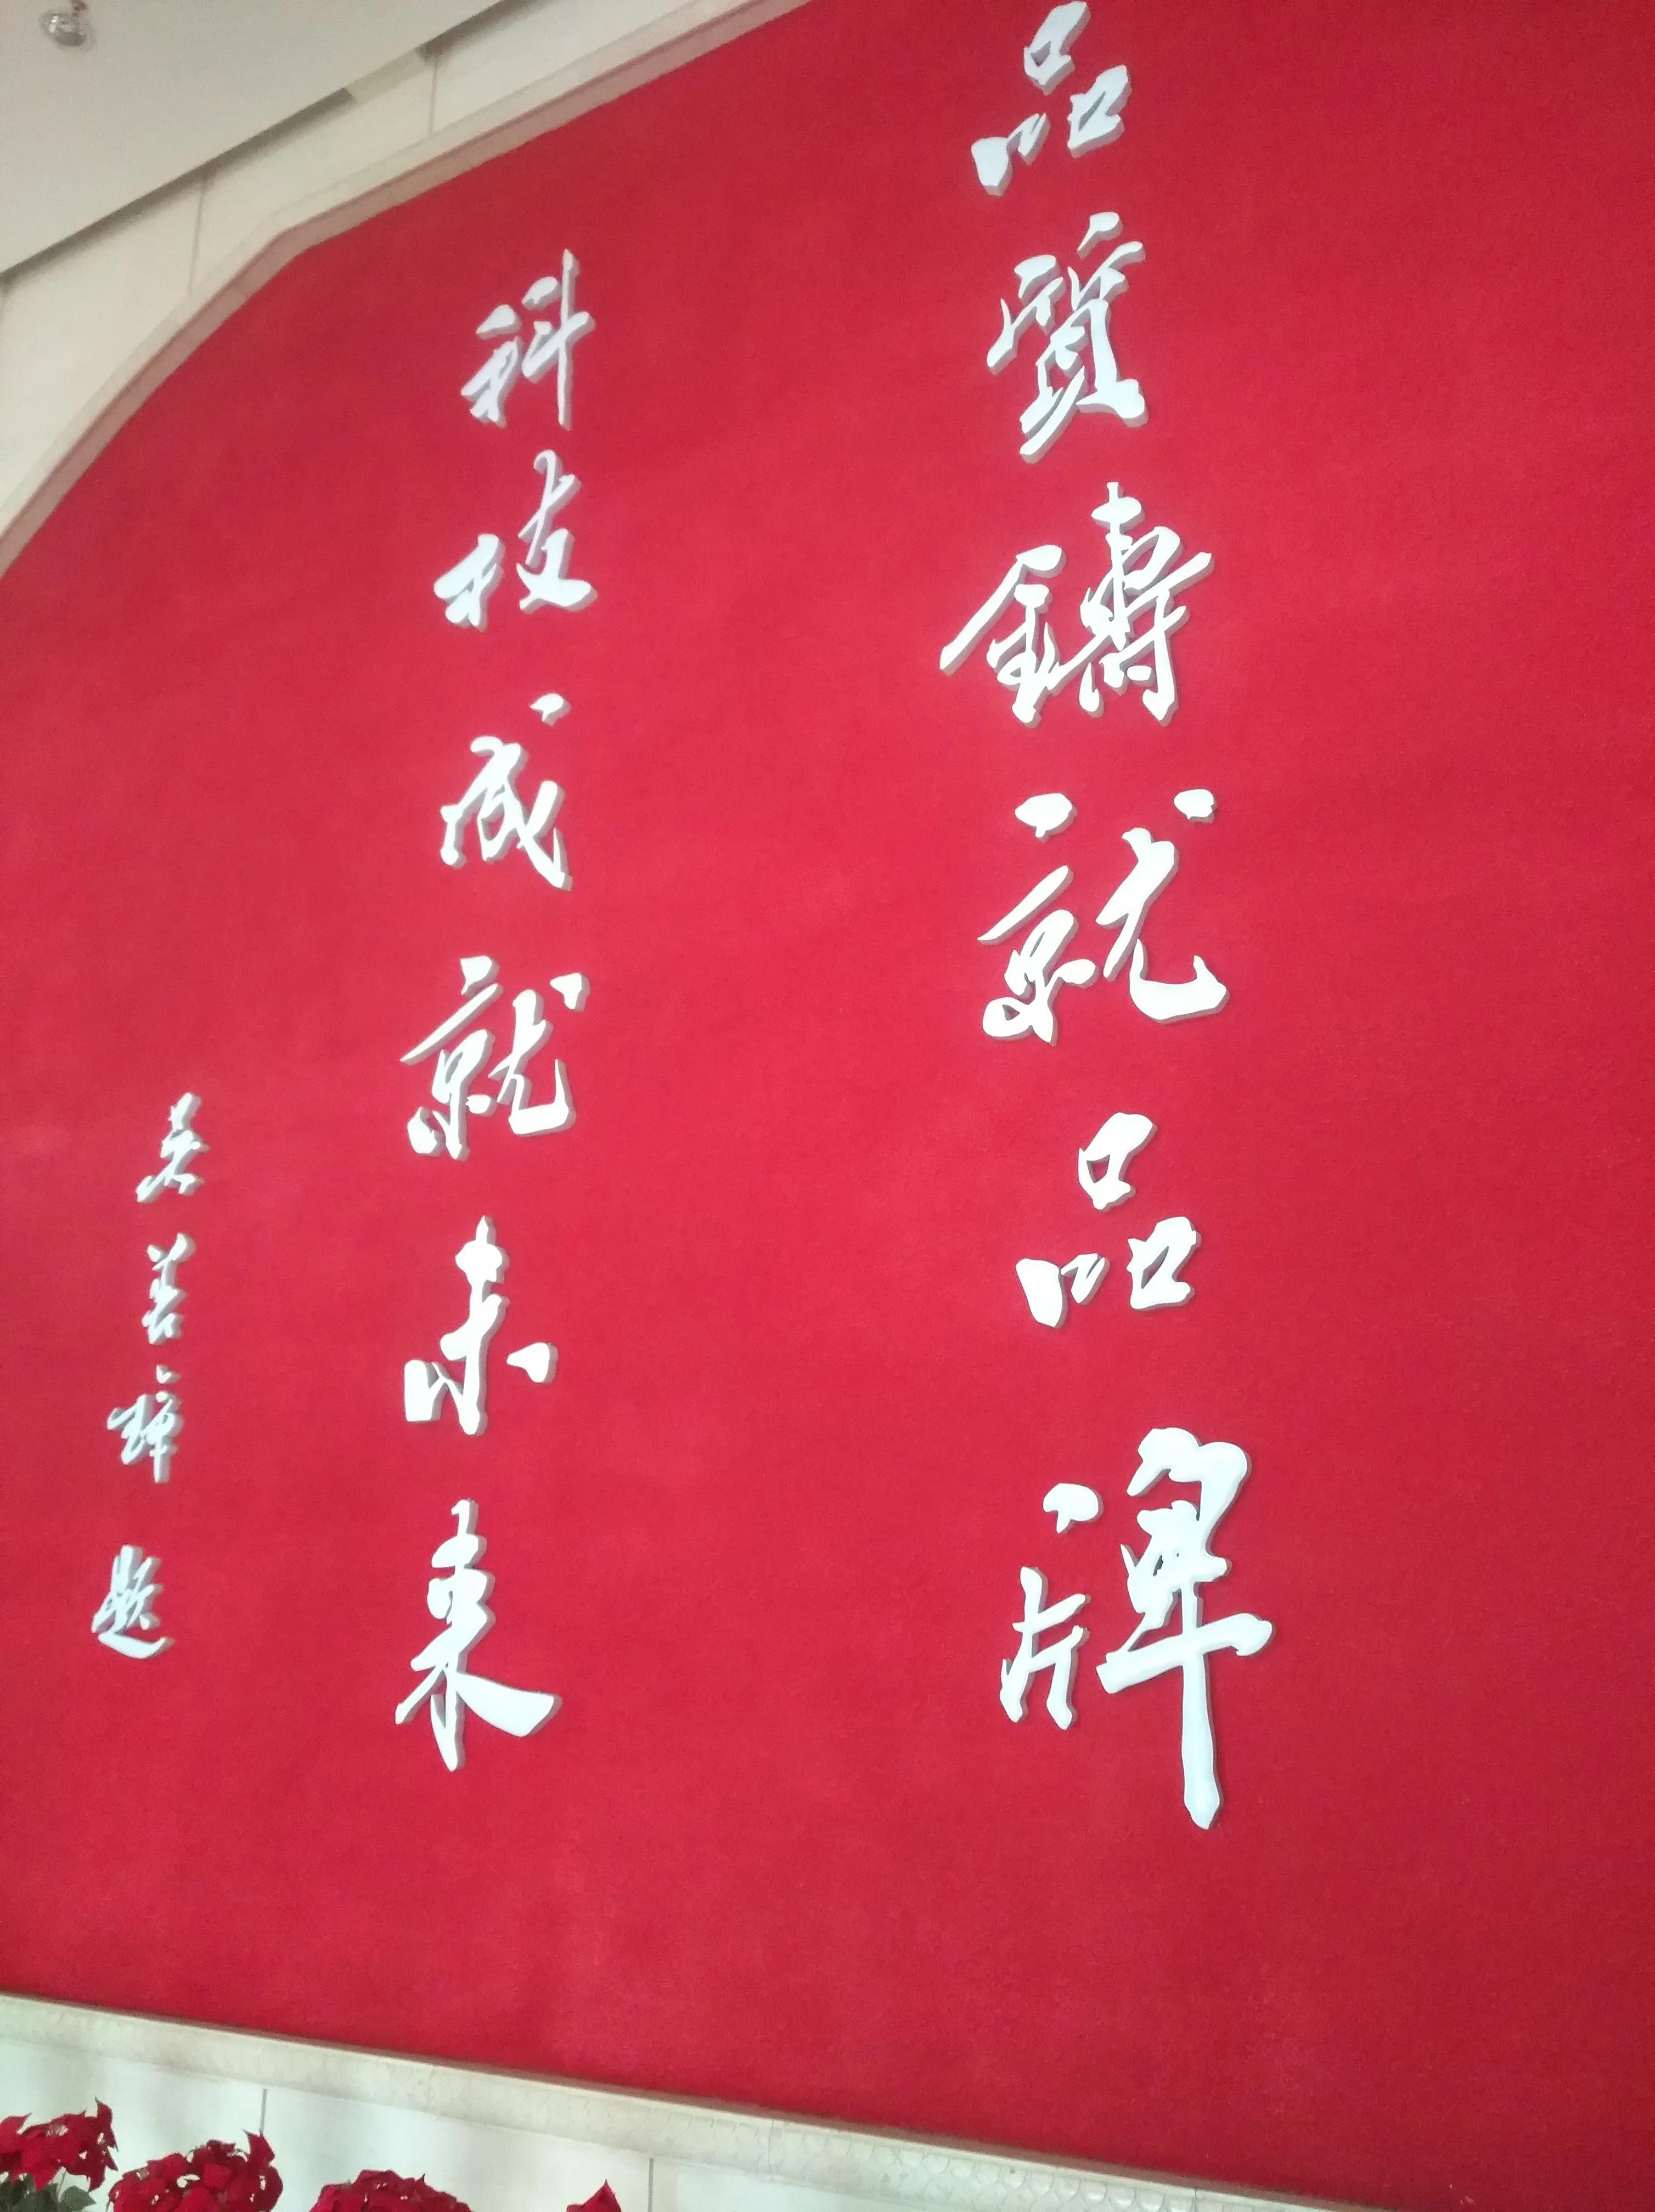 品質鑄就品牌
科技成就未來
吴善璋題